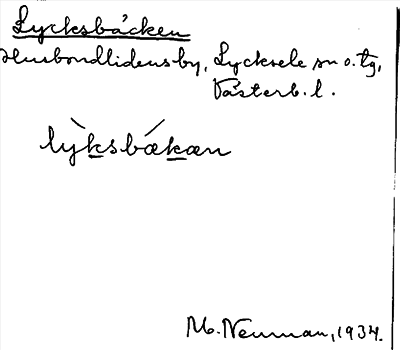 Lycksbäcken
Husbondlidens by, Lycksele sn o. tg,
Västerb. l.
lỳksbákan
M. Neuman, 1934.